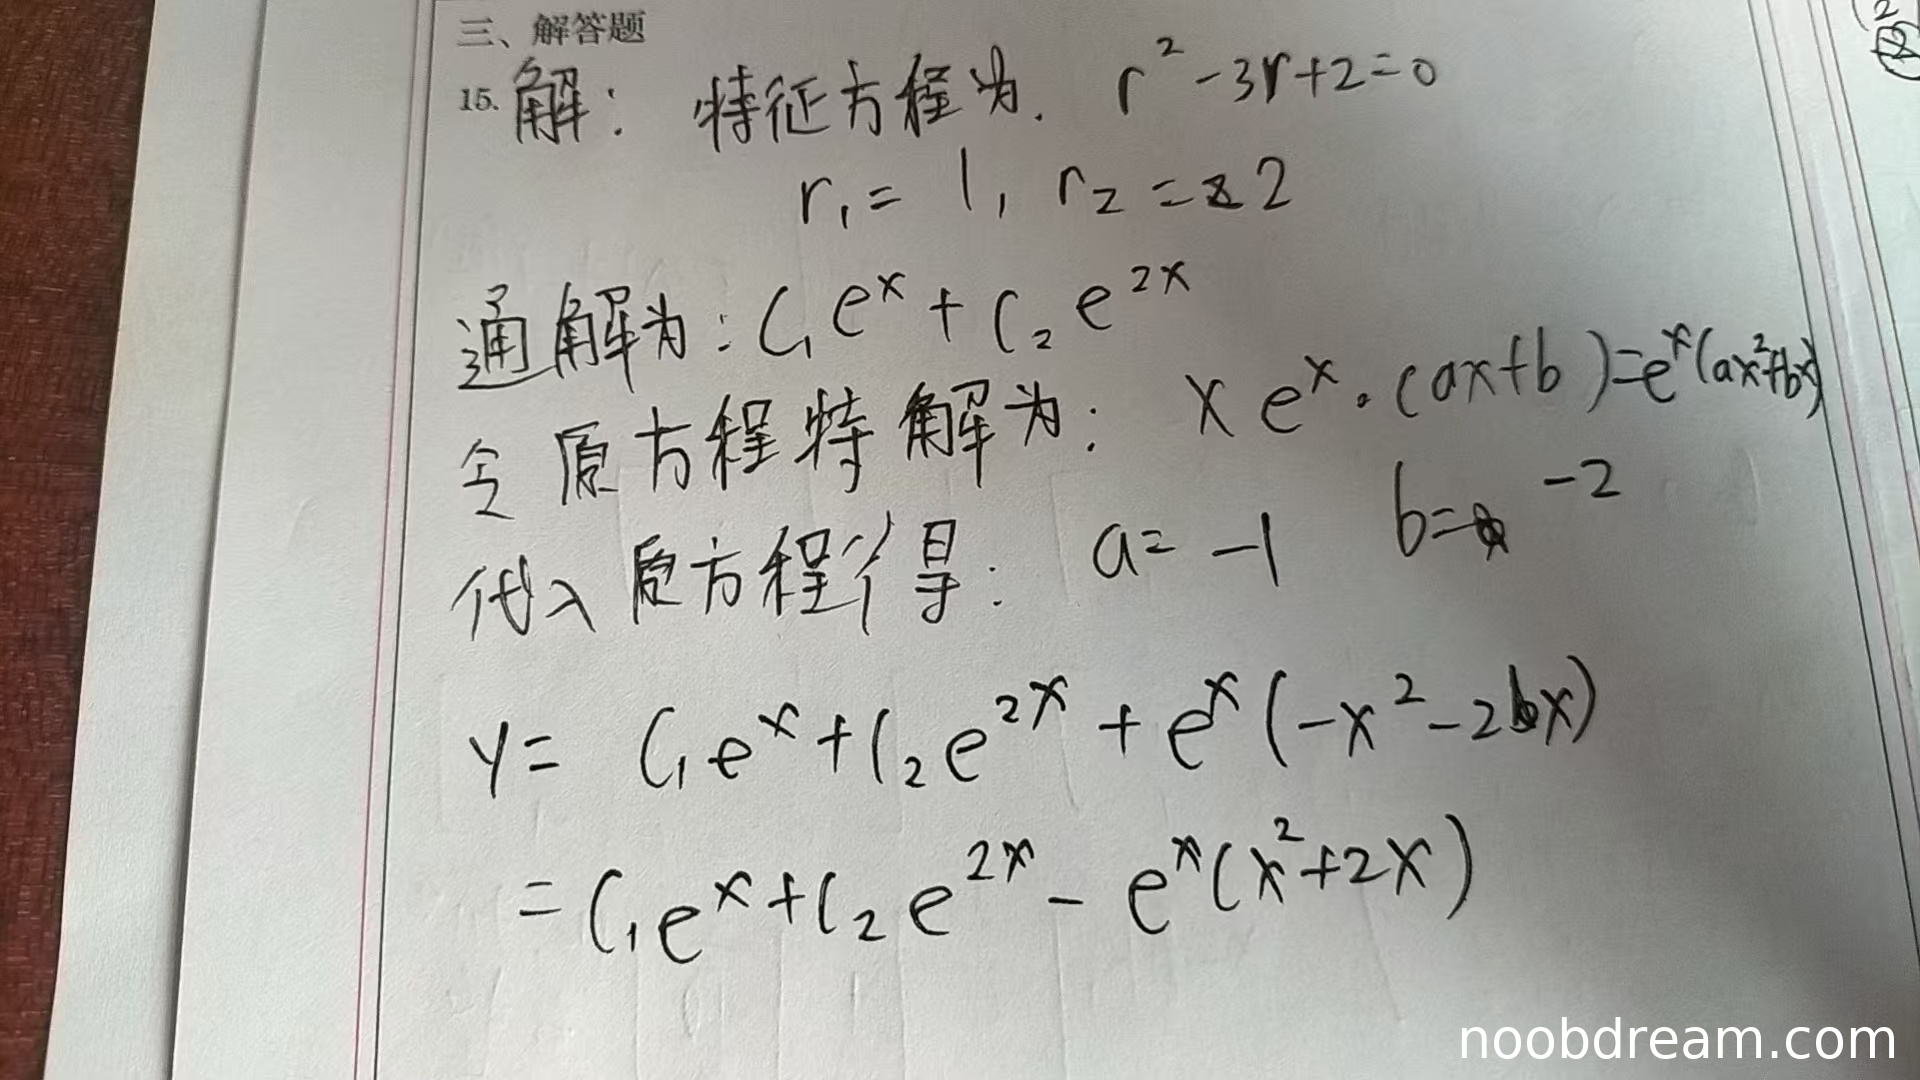 三、解答题
15. 解: 特征方程为. r² - 3r + 2 = 0
r₁ = 1, r₂ = 2
通解为: C₁eˣ + C₂e²ˣ
令原方程特解为: xeˣ·(ax+b) = eˣ(ax²+bx)
代入原方程得: a = -1 b = -2
y = C₁eˣ + C₂e²ˣ + eˣ(-x² - 2x)
= C₁eˣ + C₂e²ˣ - eˣ(x² + 2x)
noobdream.com